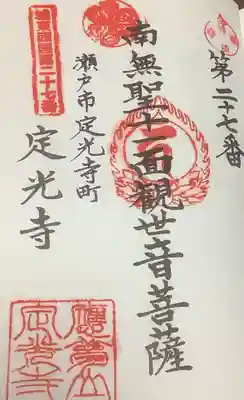 第二十七番
南無聖十一面観世音菩薩
瀬戸市定光寺町
定光寺
應夢山
定光寺